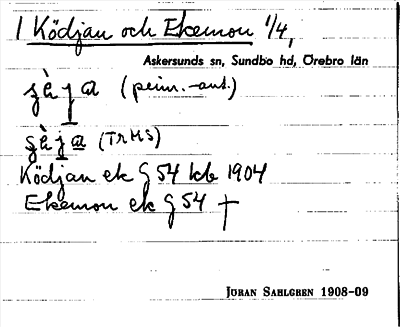 1 Ködjan och Ekemon 1/4,
Askersunds sn, Sundbo hd, Örebro län
(prim.-ant.)
(TRMS)
Ködjan ek g 54 kb 1904
Ekemon ek g 54 †
JÖRAN SAHLGREN 1908-09